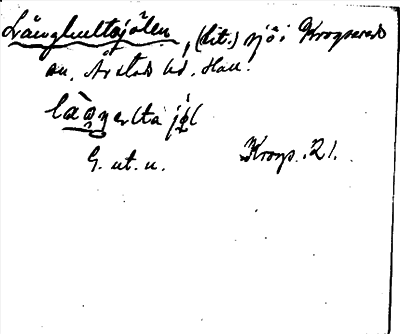 Långhultsjölen, (lit.) sjö i Krogsered
sn, Årstad hd. Hall.
làŋerlta jöl
G. ut. u. Krogs. 21.